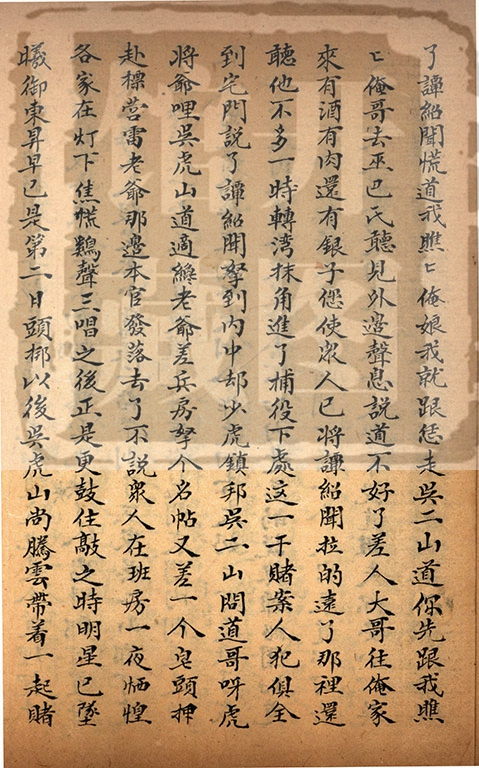 了譚紹聞慌道我瞧〻俺娘我就跟您走吳二山道你先跟我瞧
〻俺哥去巫巴氏聽見外邊聲息說道不好了差人大哥往俺家
來有酒有肉還有銀子您使眾人已將譚紹聞拉的遠了那裡還
聽他不多一時轉湾抹角進了捕役下處这一干賭案人犯俱全
到宅門說了譚紹聞拏到內中却少虎鎮邦吳二山問道哥呀虎
將爺哩吳虎山道適纔老爺差兵房拏个名帖又差一个皂頭押
赴標营雷老爺那邊本官發落去了不說衆人在班房一夜恓惶
各家在灯下焦慌鷄聲三唱之後正是更鼓住敲之時明星已墜
曦御東昇早已是第二日頭挷以後吳虎山尚騰雲帶着一起賭